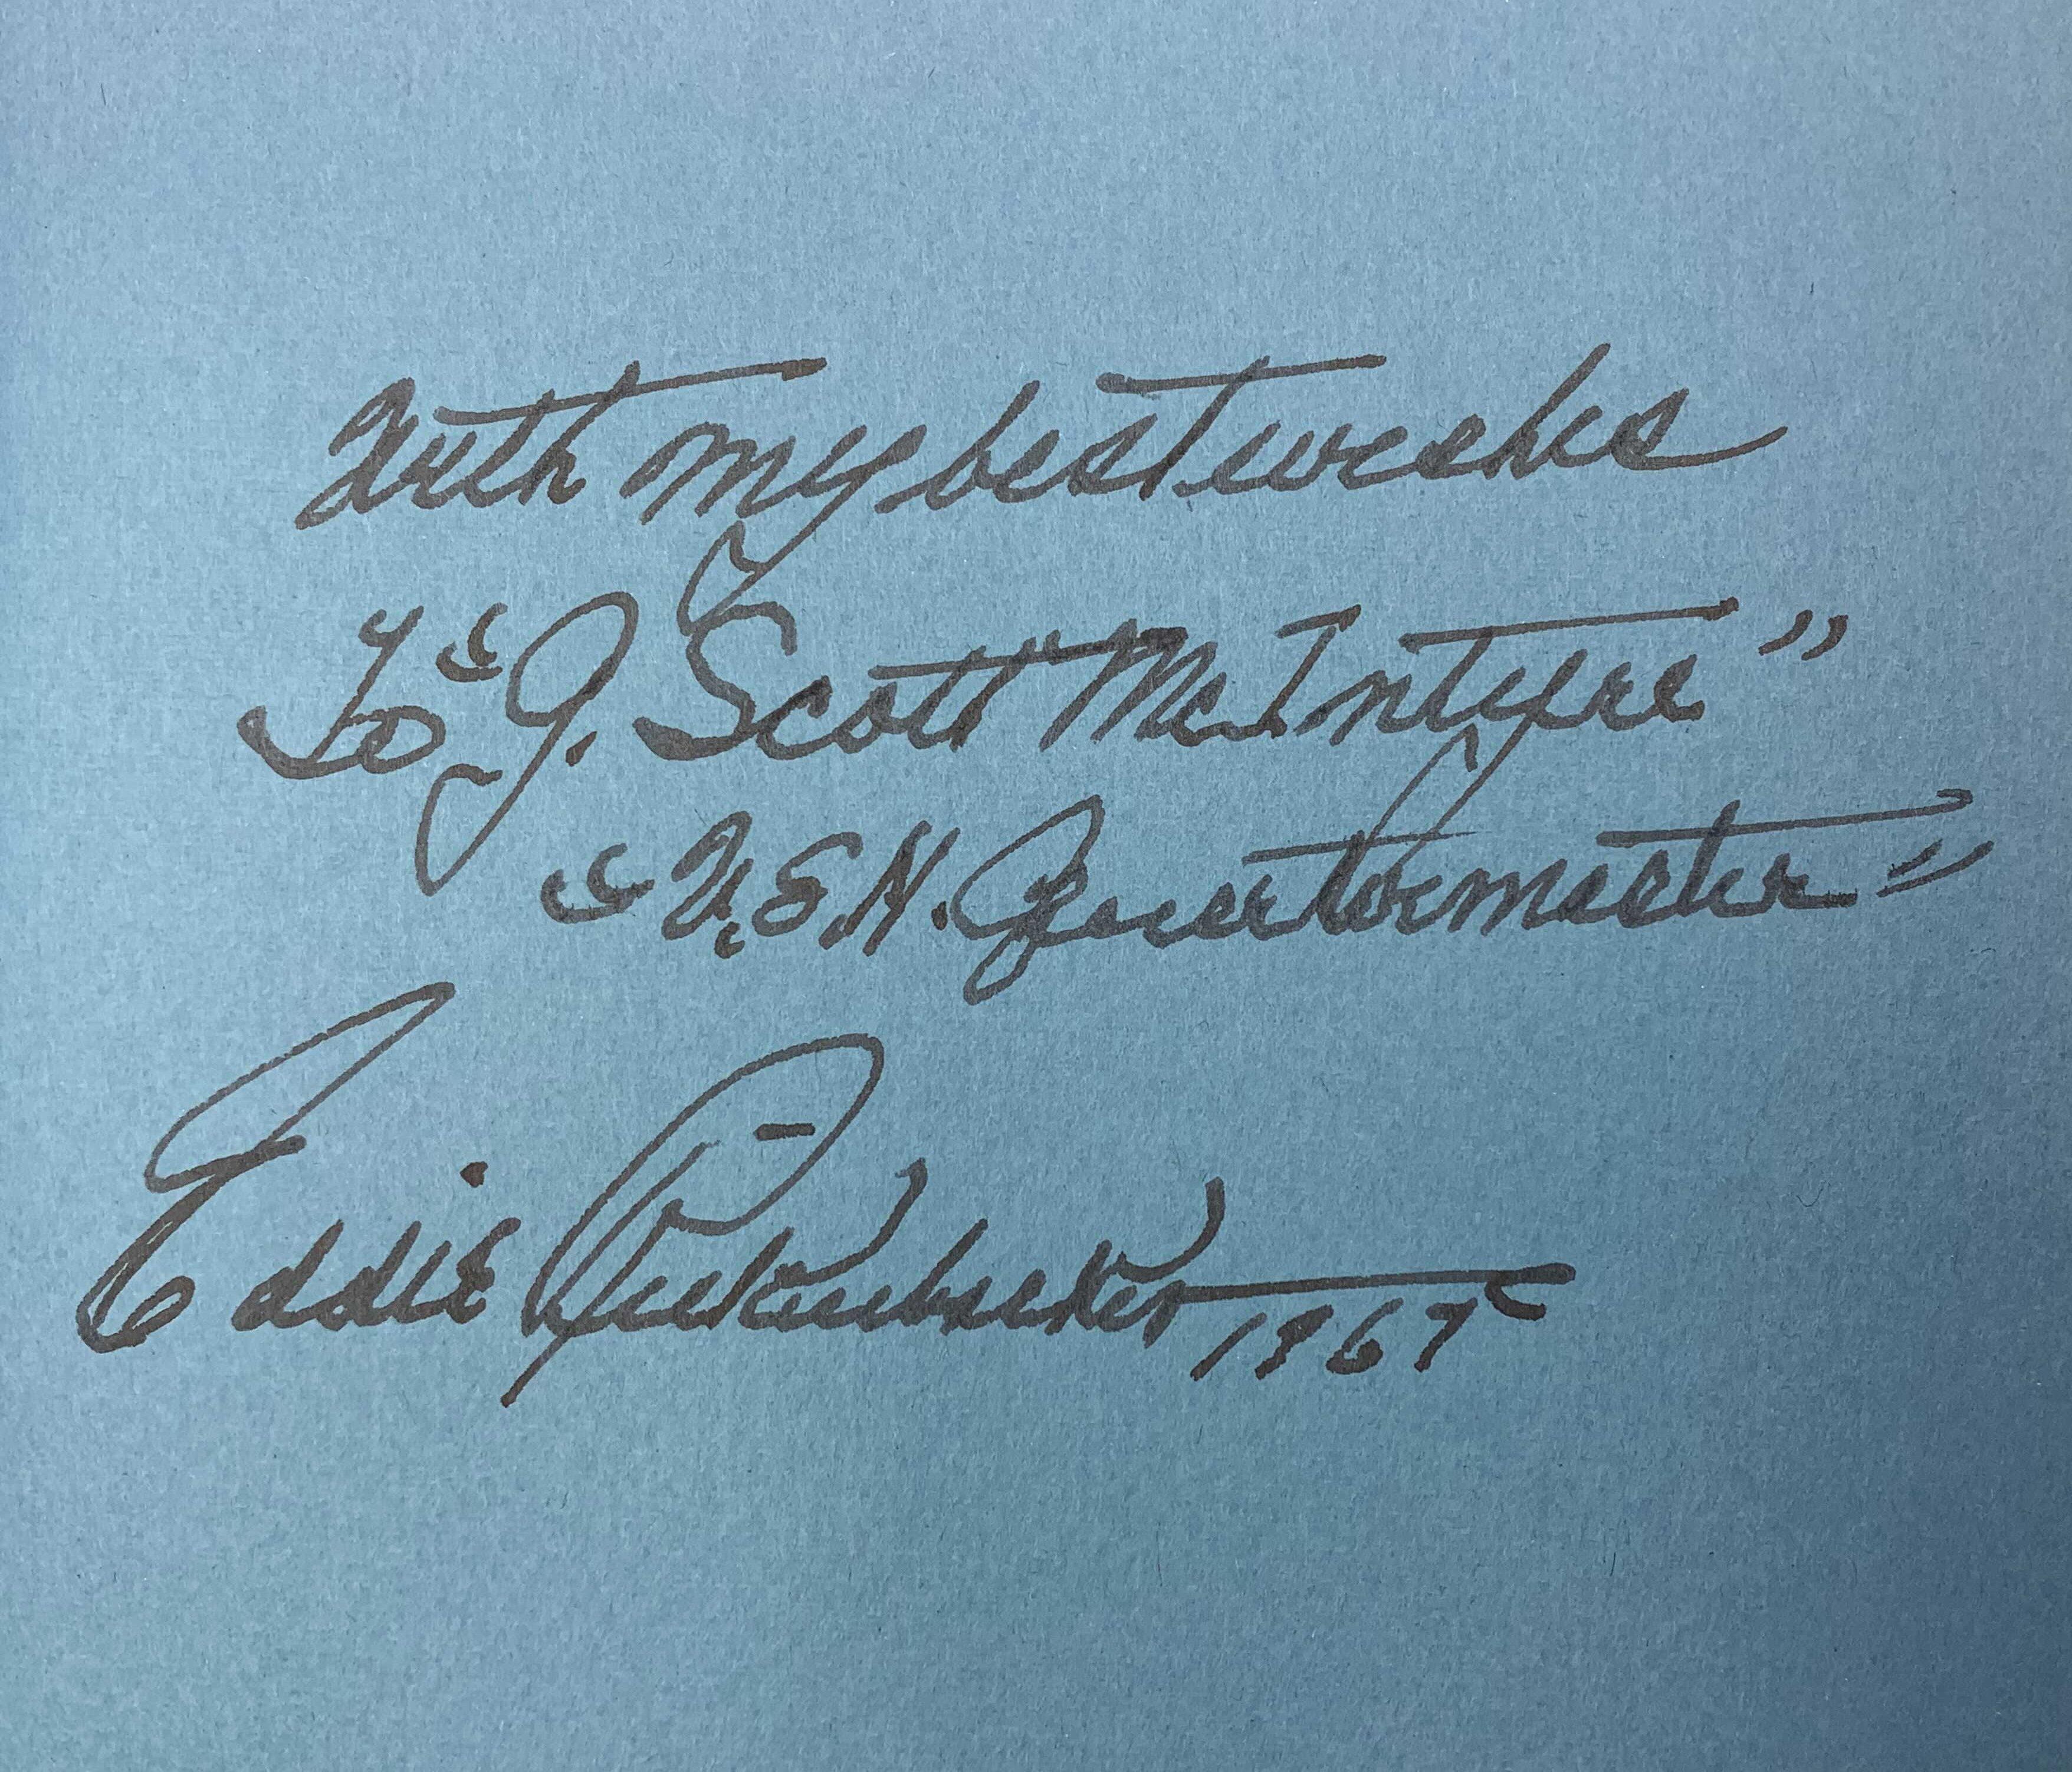 With my best wishes
To "J. Scott McIntyre"
"Quartermaster"
Eddie Rickenbacker 1967